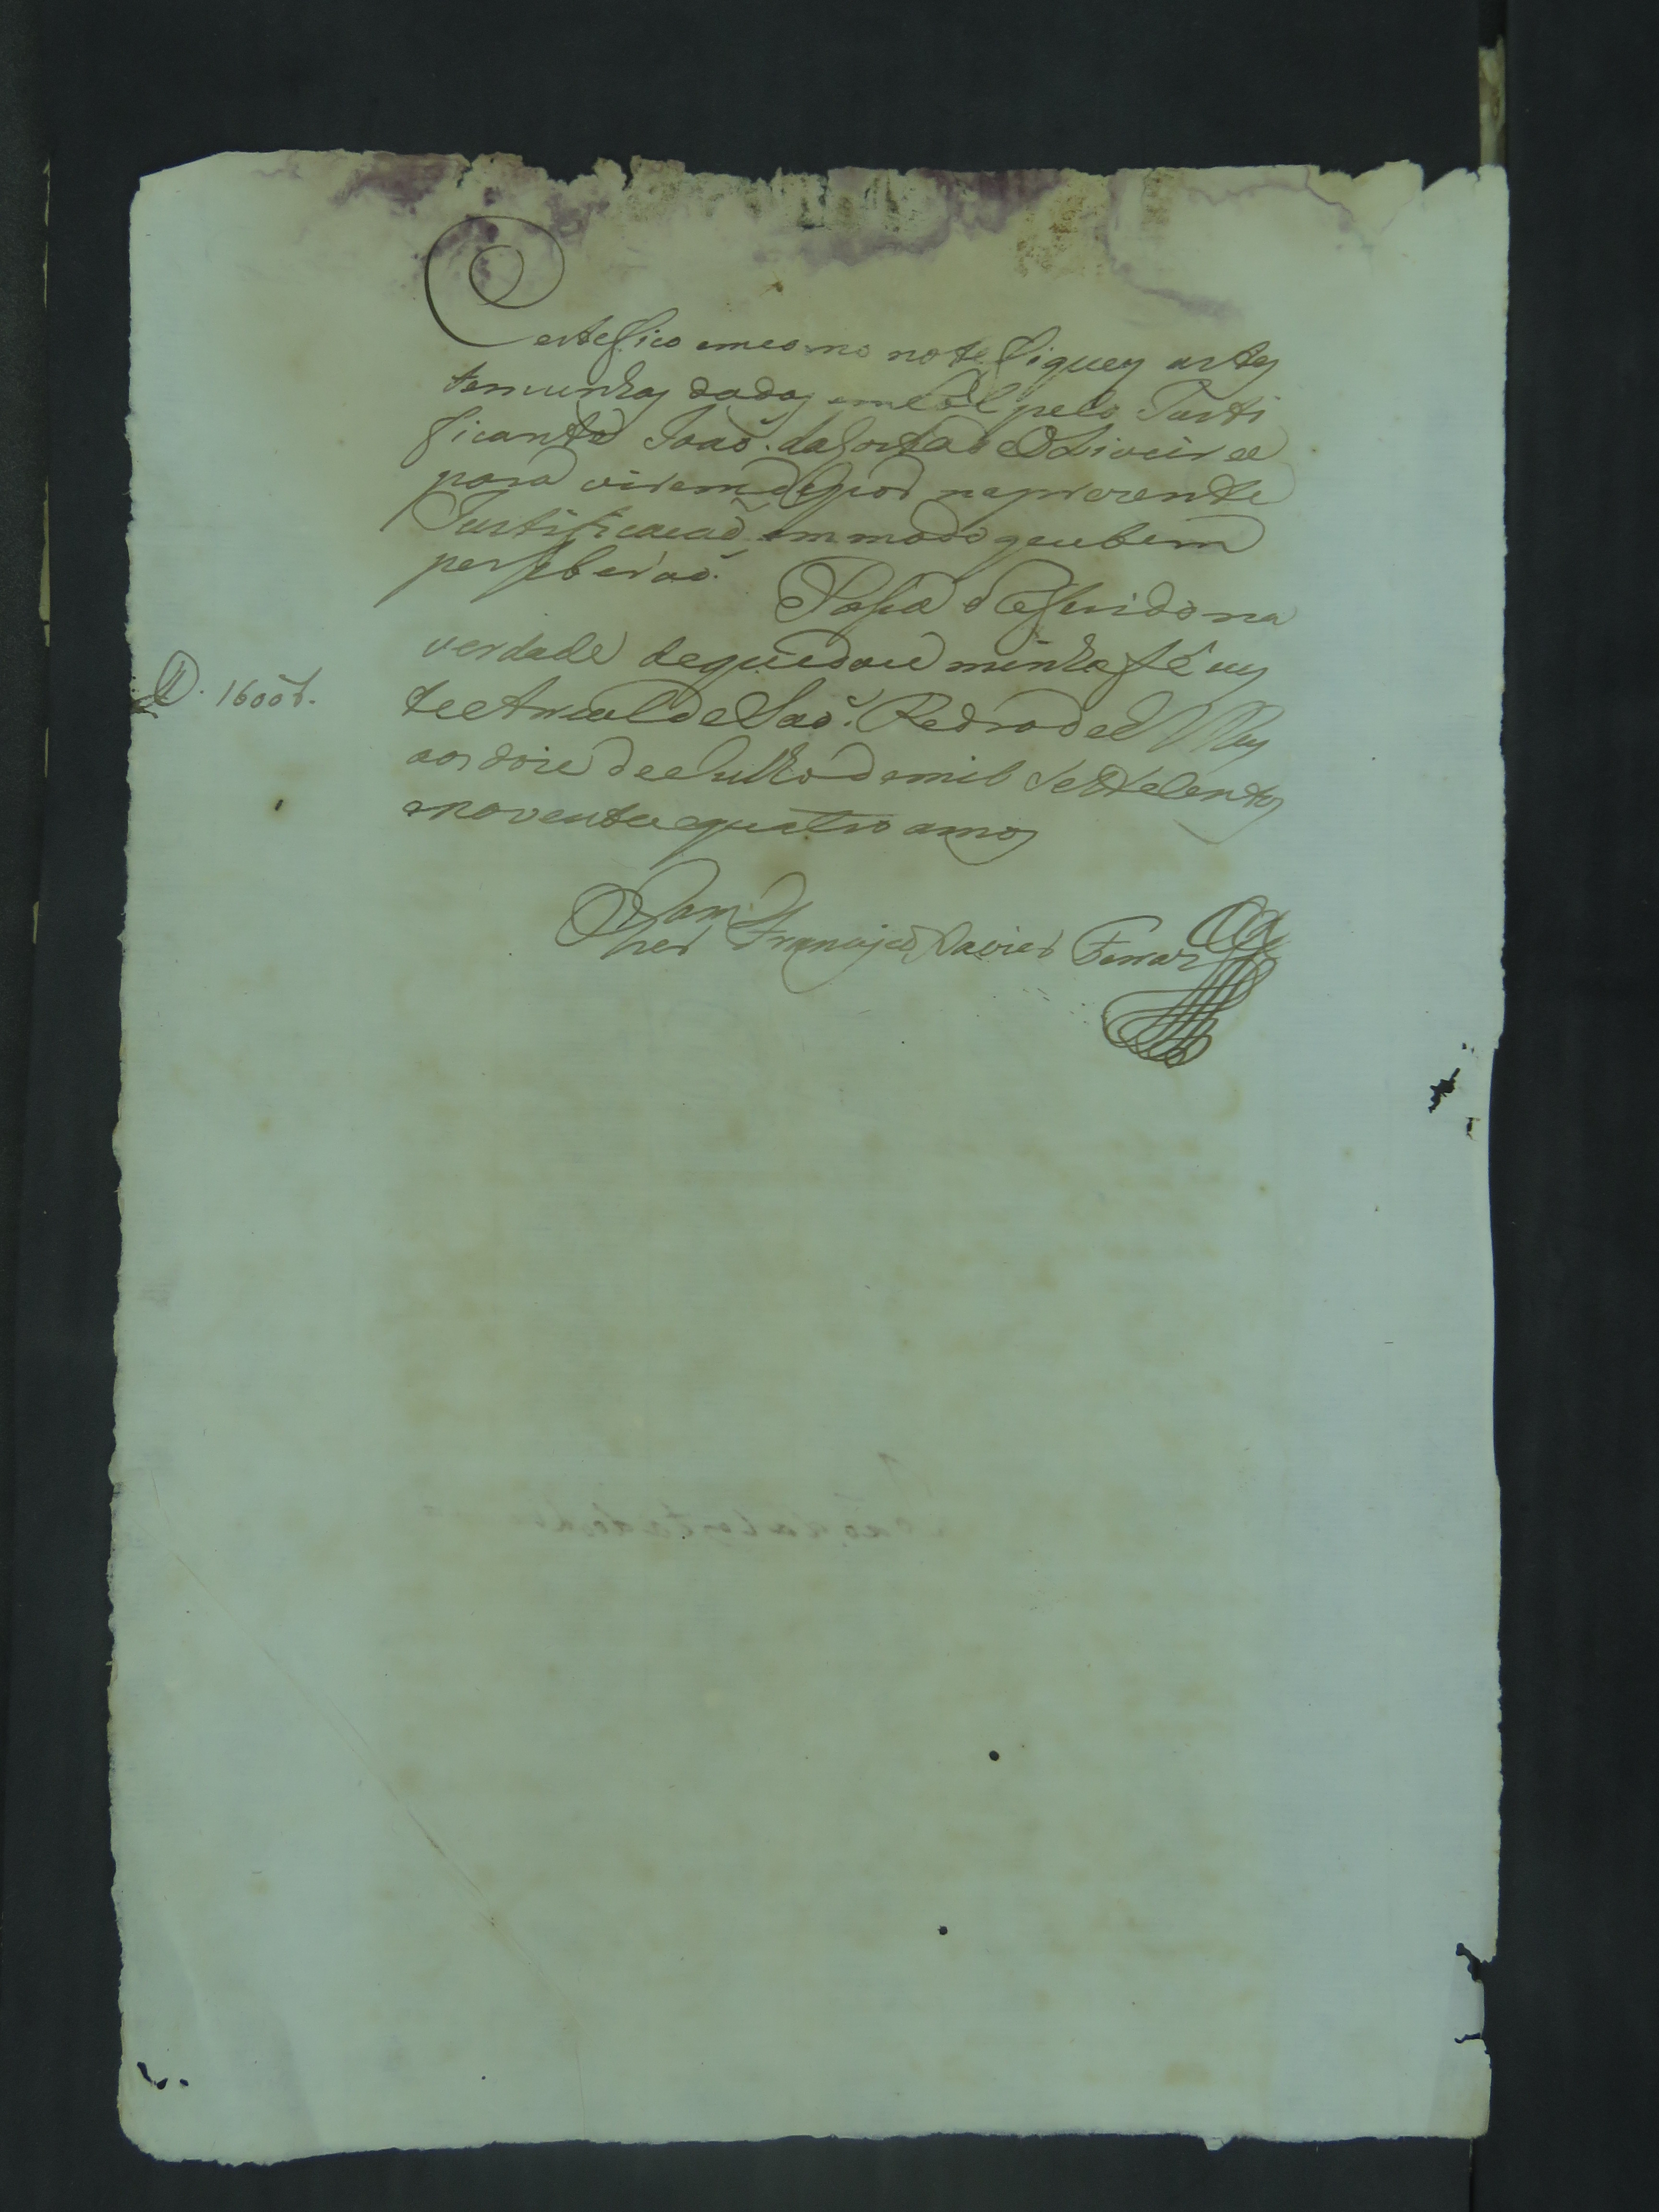 Certefico emcomo notefiquey astes
temunhas dadas em Rol pelo Justi
ficante João da Costa de Oliveira
para virem depor naprezente
Justificacaõ em modo queubem
perseberaõ.
Pasa o Referido na
verdade dequedou minha fé nes
te Arraial de Saõ Pedro del Rey
D. 1600 r.
aos doze de Julho demil Setecentos
enoventaequatro annos
Francisco Xavier Ferraz